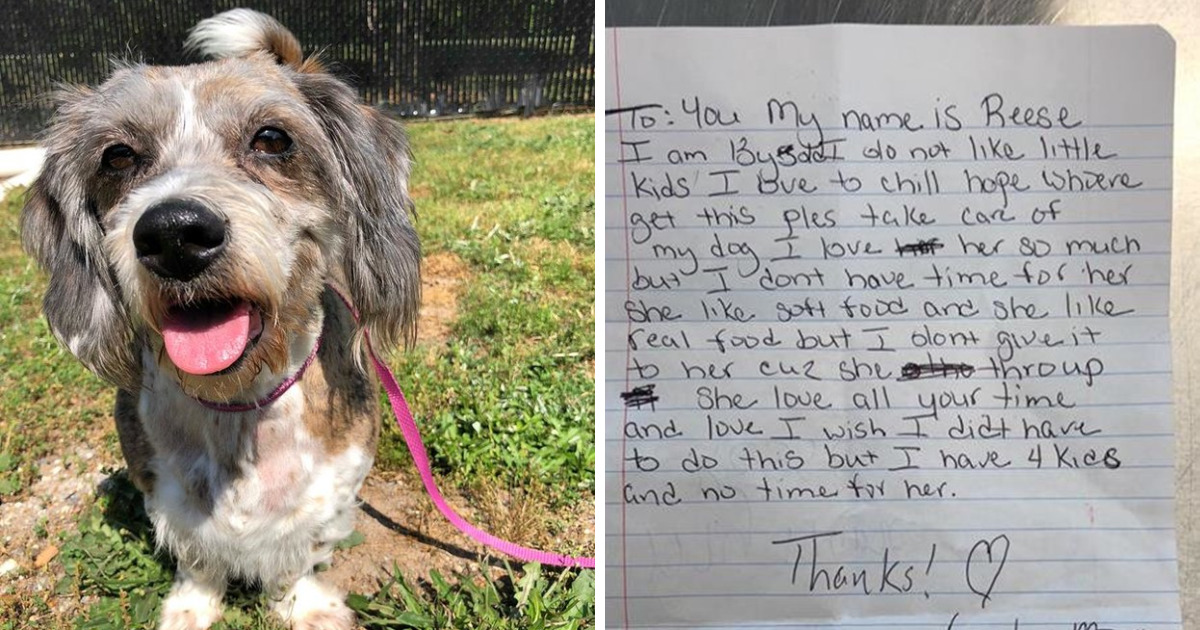 To: You My name is Reese
I am 13 I do not like little
kids I love to chill hope whoere
get this ples take care of
my dog I love her so much
but I dont have time for her
She like soft food and she like
real food but I dont give it
to her cuz she throup
She love all your time
and love I wish I didt have
to do this but I have 4 kids
and no time for her.
Thanks! ♡